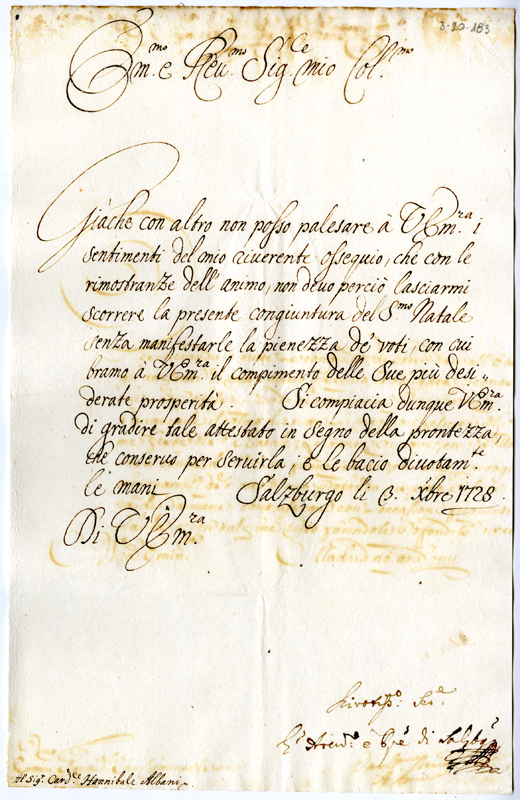 3-20-183
Em.mo e Reu.mo Sig.re mio Col.mo
Giàche con altro non posso palesare à V Em.ra i
sentimenti del mio riverente ossequio, che con le
rimostranze dell' animo, non devo perciò lasciarmi
scorrere la presente congiuntura del S.mo Natale
senza manifestarle la pienezza de' voti, con cui
bramo à V Em.ra il compimento delle Sue più desi„
derate prosperità. Si compiacia dunque V Em.ra
di gradire tale attestato in segno della prontezza,
che conservo per servirla; e le bacio divotam.te
le mani Salzburgo li 3. Xbre 1728.
Di V Em.ra
di
Al Sig.r Card.le Hannibale Albani